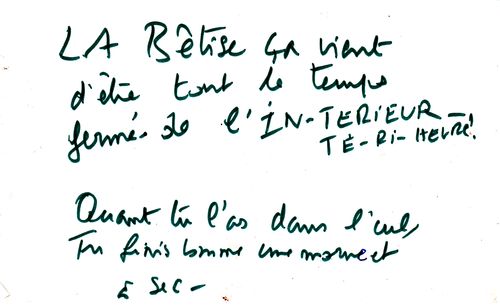 LA Bêtise ça vient
d'être tout le temps
fermé de l'IN-TERIEUR -
TÉ-RI-HEURE!
Quant tu l'as dans l'cul,
Tu finis comme une
à sec -